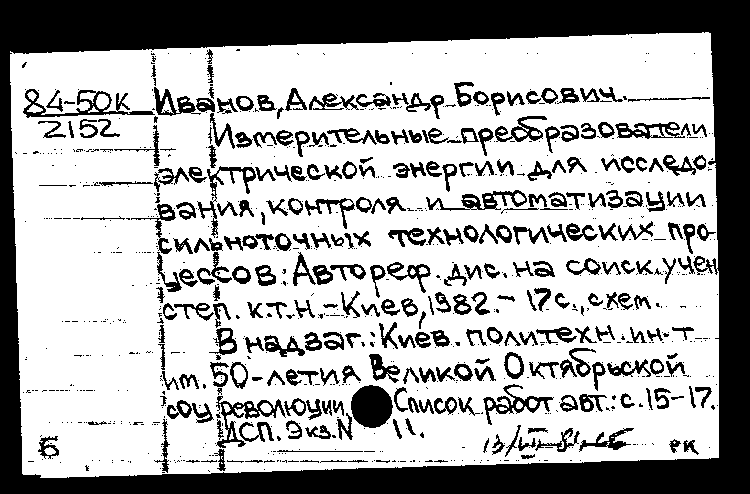 84-50К Иванов, Александр Борисович.
2152 Измерительные преобразователи
электрической энергии для исследо-
вания, контроля и автоматизации
сильноточных технологических про-
цессов: Автореф. дис. на соиск. учен
степ. к.т.н. - Киев, 1982. - 17с., схем.
В надзаг.: Киев. политехн. ин-т
им. 50-летия Великой Октябрьской
соц революции. Список работ авт.: с. 15-17.
ДСП. Экз. N 11.
Б РК